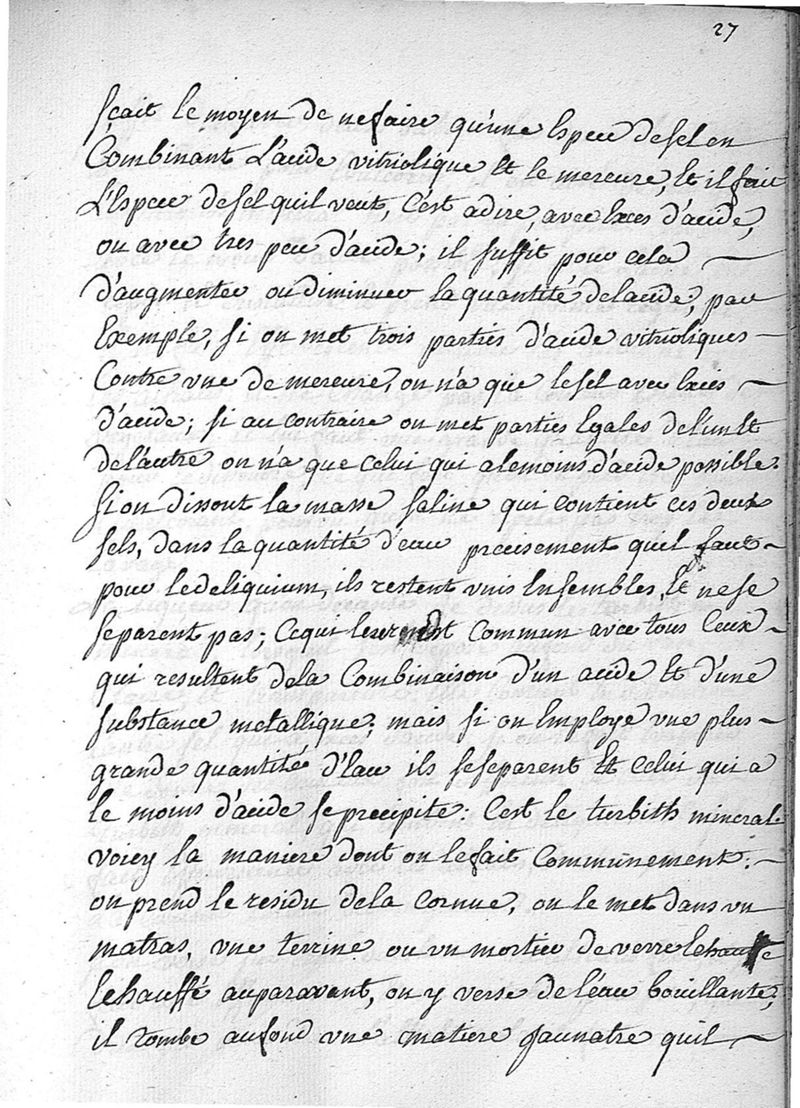 27
sçait le moyen de ne faire qu'une Espece de sel en
Combinant L'acide vitriolique Et le mercure, Et il fait
L'Espece de sel qu'il veut, C'est adire, avec Exces d'acide,
ou avec tres peu d'acide; il suffit pour cela
d'augmenter ou diminuer la quantité de lacide, par
Exemple, si on met trois parties d'acide vitrioliques
Contre une de mercure, on n'a que le sel avec Excès
d'acide; si au contraire on met parties Egales de l'un Et
de l'autre on n'a que Celui qui a le moins d'acide possible.
Si on dissout la masse saline qui contient ces deux
sels, dans la quantité d'eau precisement qu'il faut
pour le deliquium, ils restent unis Ensembles, Et ne se
separent pas; Ce qui leur est commun avec tous Ceux
qui resultent de la Combinaison d'un acide Et d'une
substance metallique; mais si on Employe une plus
grande quantité d'Eau ils se separent Et Celui qui a
le moins d'acide se precipite: C'est le turbith mineral.
voicy la maniere dont on le fait Communement:
on prend le residu de la Cornue, on le met dans un
matras, une terrine ou un mortier de verre Echauffe
Echauffé auparavant, on y verse de l'éau bouillante;
il tombe au fond une matiere Jaunatre qu'il